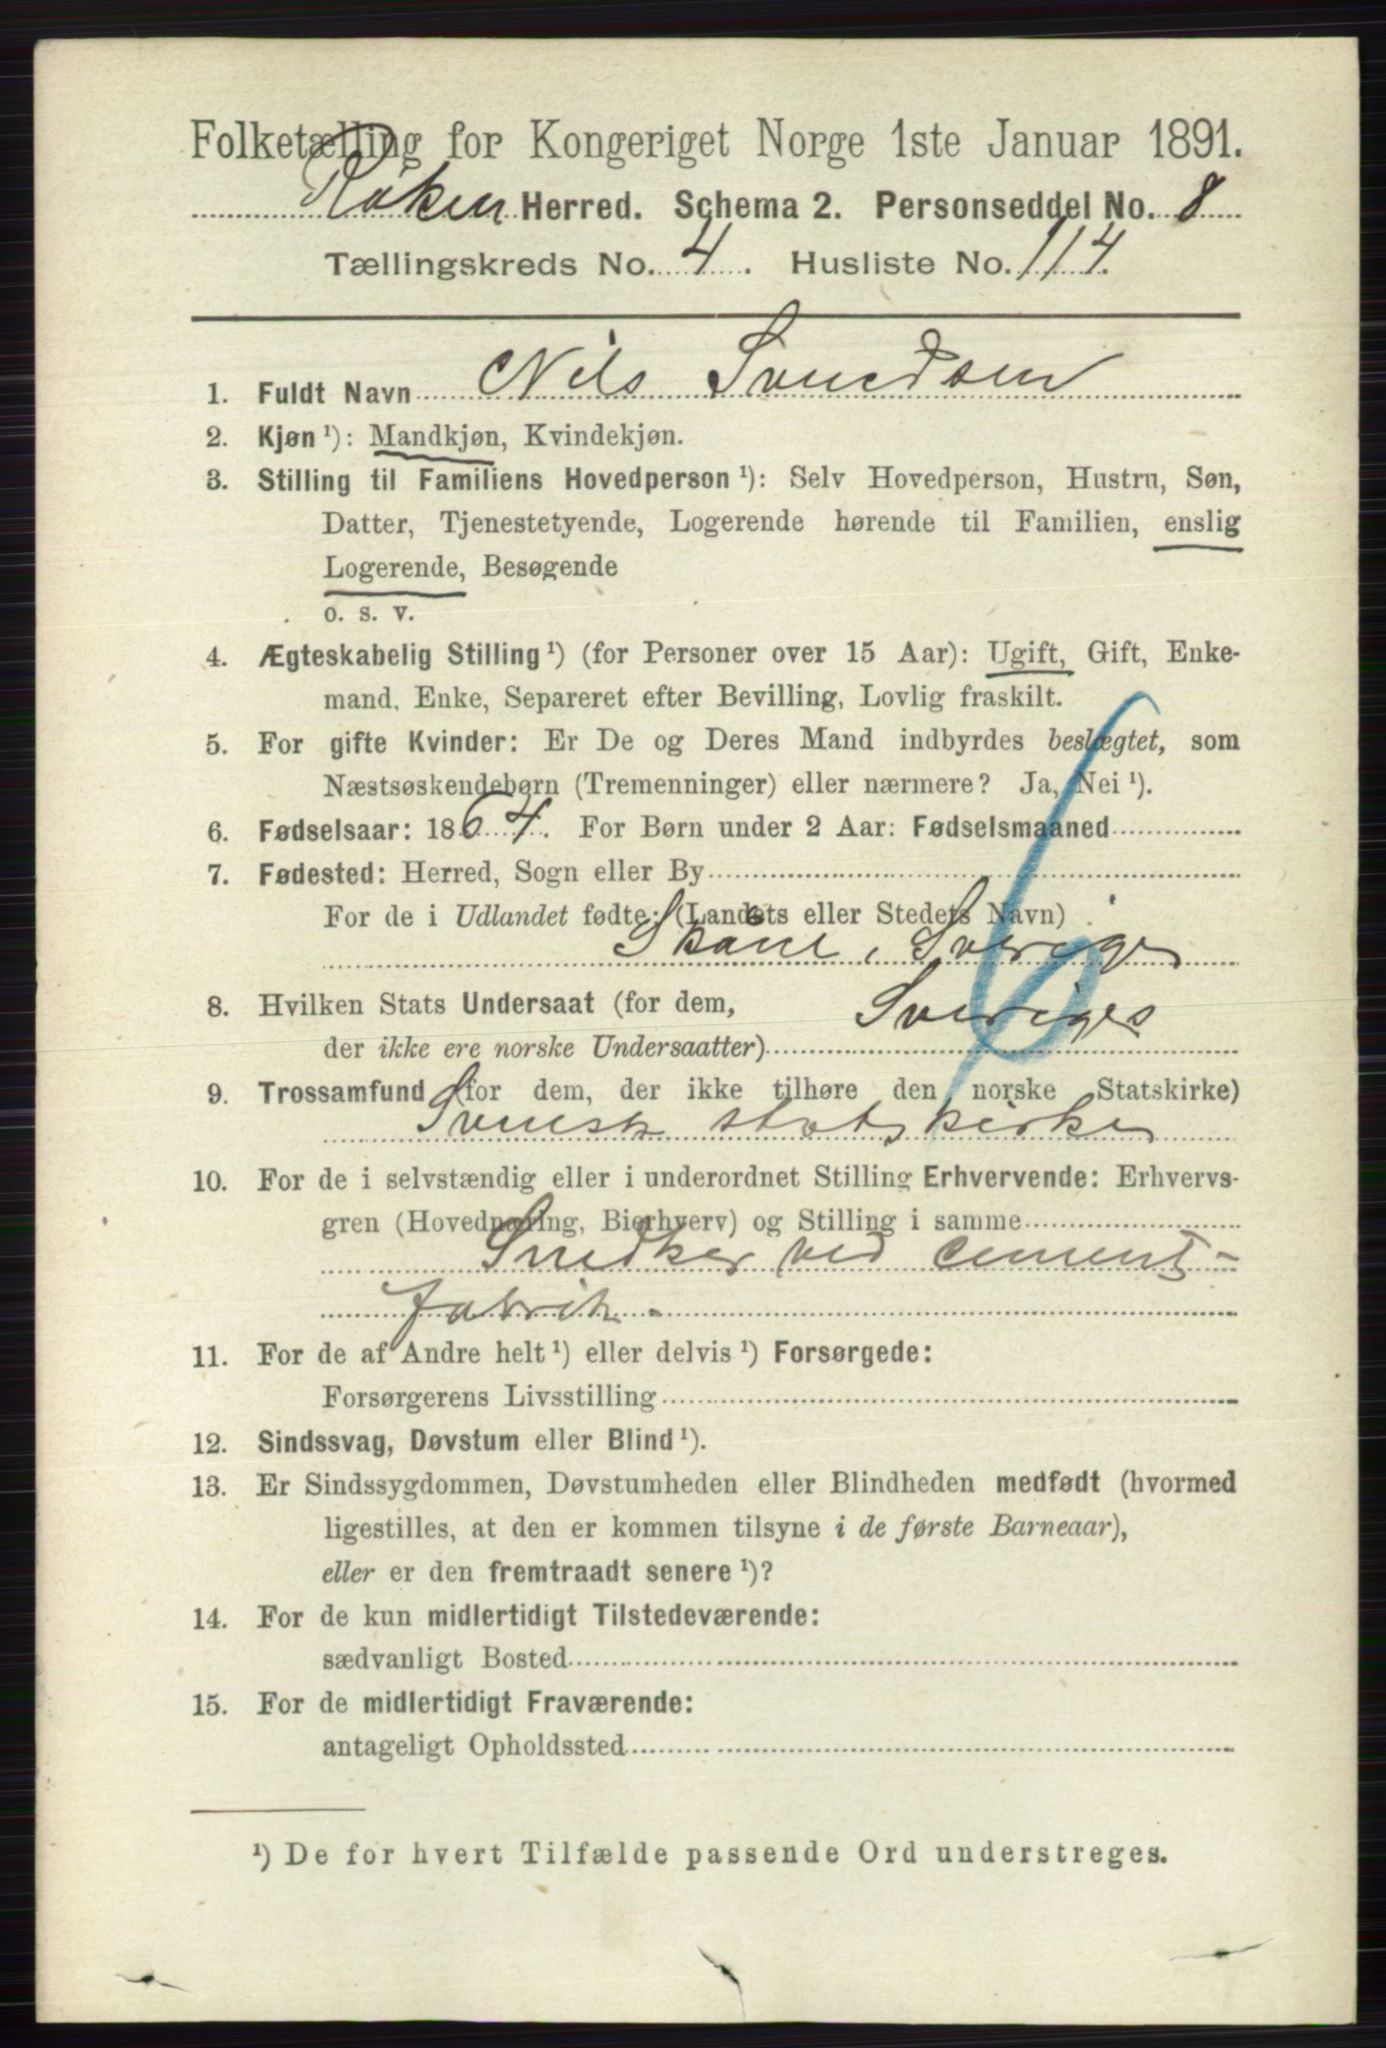 Folketælling for Kongeriget Norge 1ste Januar 1891.
Røken Herred. Schema 2. Personseddel No. 8
Tællingskreds No. 4. Husliste No. 114.
1. Fuldt Navn Nils Svendsen
2. Kjøn ¹): Mandkjøn, Kvindekjøn.
3. Stilling til Familiens Hovedperson ¹): Selv Hovedperson, Hustru, Søn,
Datter, Tjenestetyende, Logerende hørende til Familien, enslig
Logerende, Besøgende
o. s. v.
4. Ægteskabelig Stilling ¹) (for Personer over 15 Aar): Ugift, Gift, Enke-
mand, Enke, Separeret efter Bevilling, Lovlig fraskilt.
5. For gifte Kvinder: Er De og Deres Mand indbyrdes beslægtet, som
Næstsøskendebørn (Tremenninger) eller nærmere? Ja, Nei ¹).
6. Fødselsaar: 1864. For Børn under 2 Aar: Fødselsmaaned
7. Fødested: Herred, Sogn eller By
For de i Udlandet fødte: (Landets eller Stedets Navn)
Skåne, Sverige
8. Hvilken Stats Undersaat (for dem, Sveriges
der ikke ere norske Undersaatter)
9. Trossamfund (for dem, der ikke tilhøre den norske Statskirke)
Svensk statskirke
10. For de i selvstændig eller i underordnet Stilling Erhvervende: Erhvervs-
gren (Hovednæring, Bierhverv) og Stilling i samme
Snedker ved Cement-
fabrik.
11. For de af Andre helt ¹) eller delvis ¹) Forsørgede:
Forsørgerens Livsstilling
12. Sindssvag, Døvstum eller Blind ¹).
13. Er Sindssygdommen, Døvstumheden eller Blindheden medfødt (hvormed
ligestilles, at den er kommen tilsyne i de første Barneaar),
eller er den fremtraadt senere ¹)?
14. For de kun midlertidigt Tilstedeværende:
sædvanligt Bosted
15. For de midlertidigt Fraværende:
antageligt Opholdssted
¹) De for hvert Tilfælde passende Ord understreges.